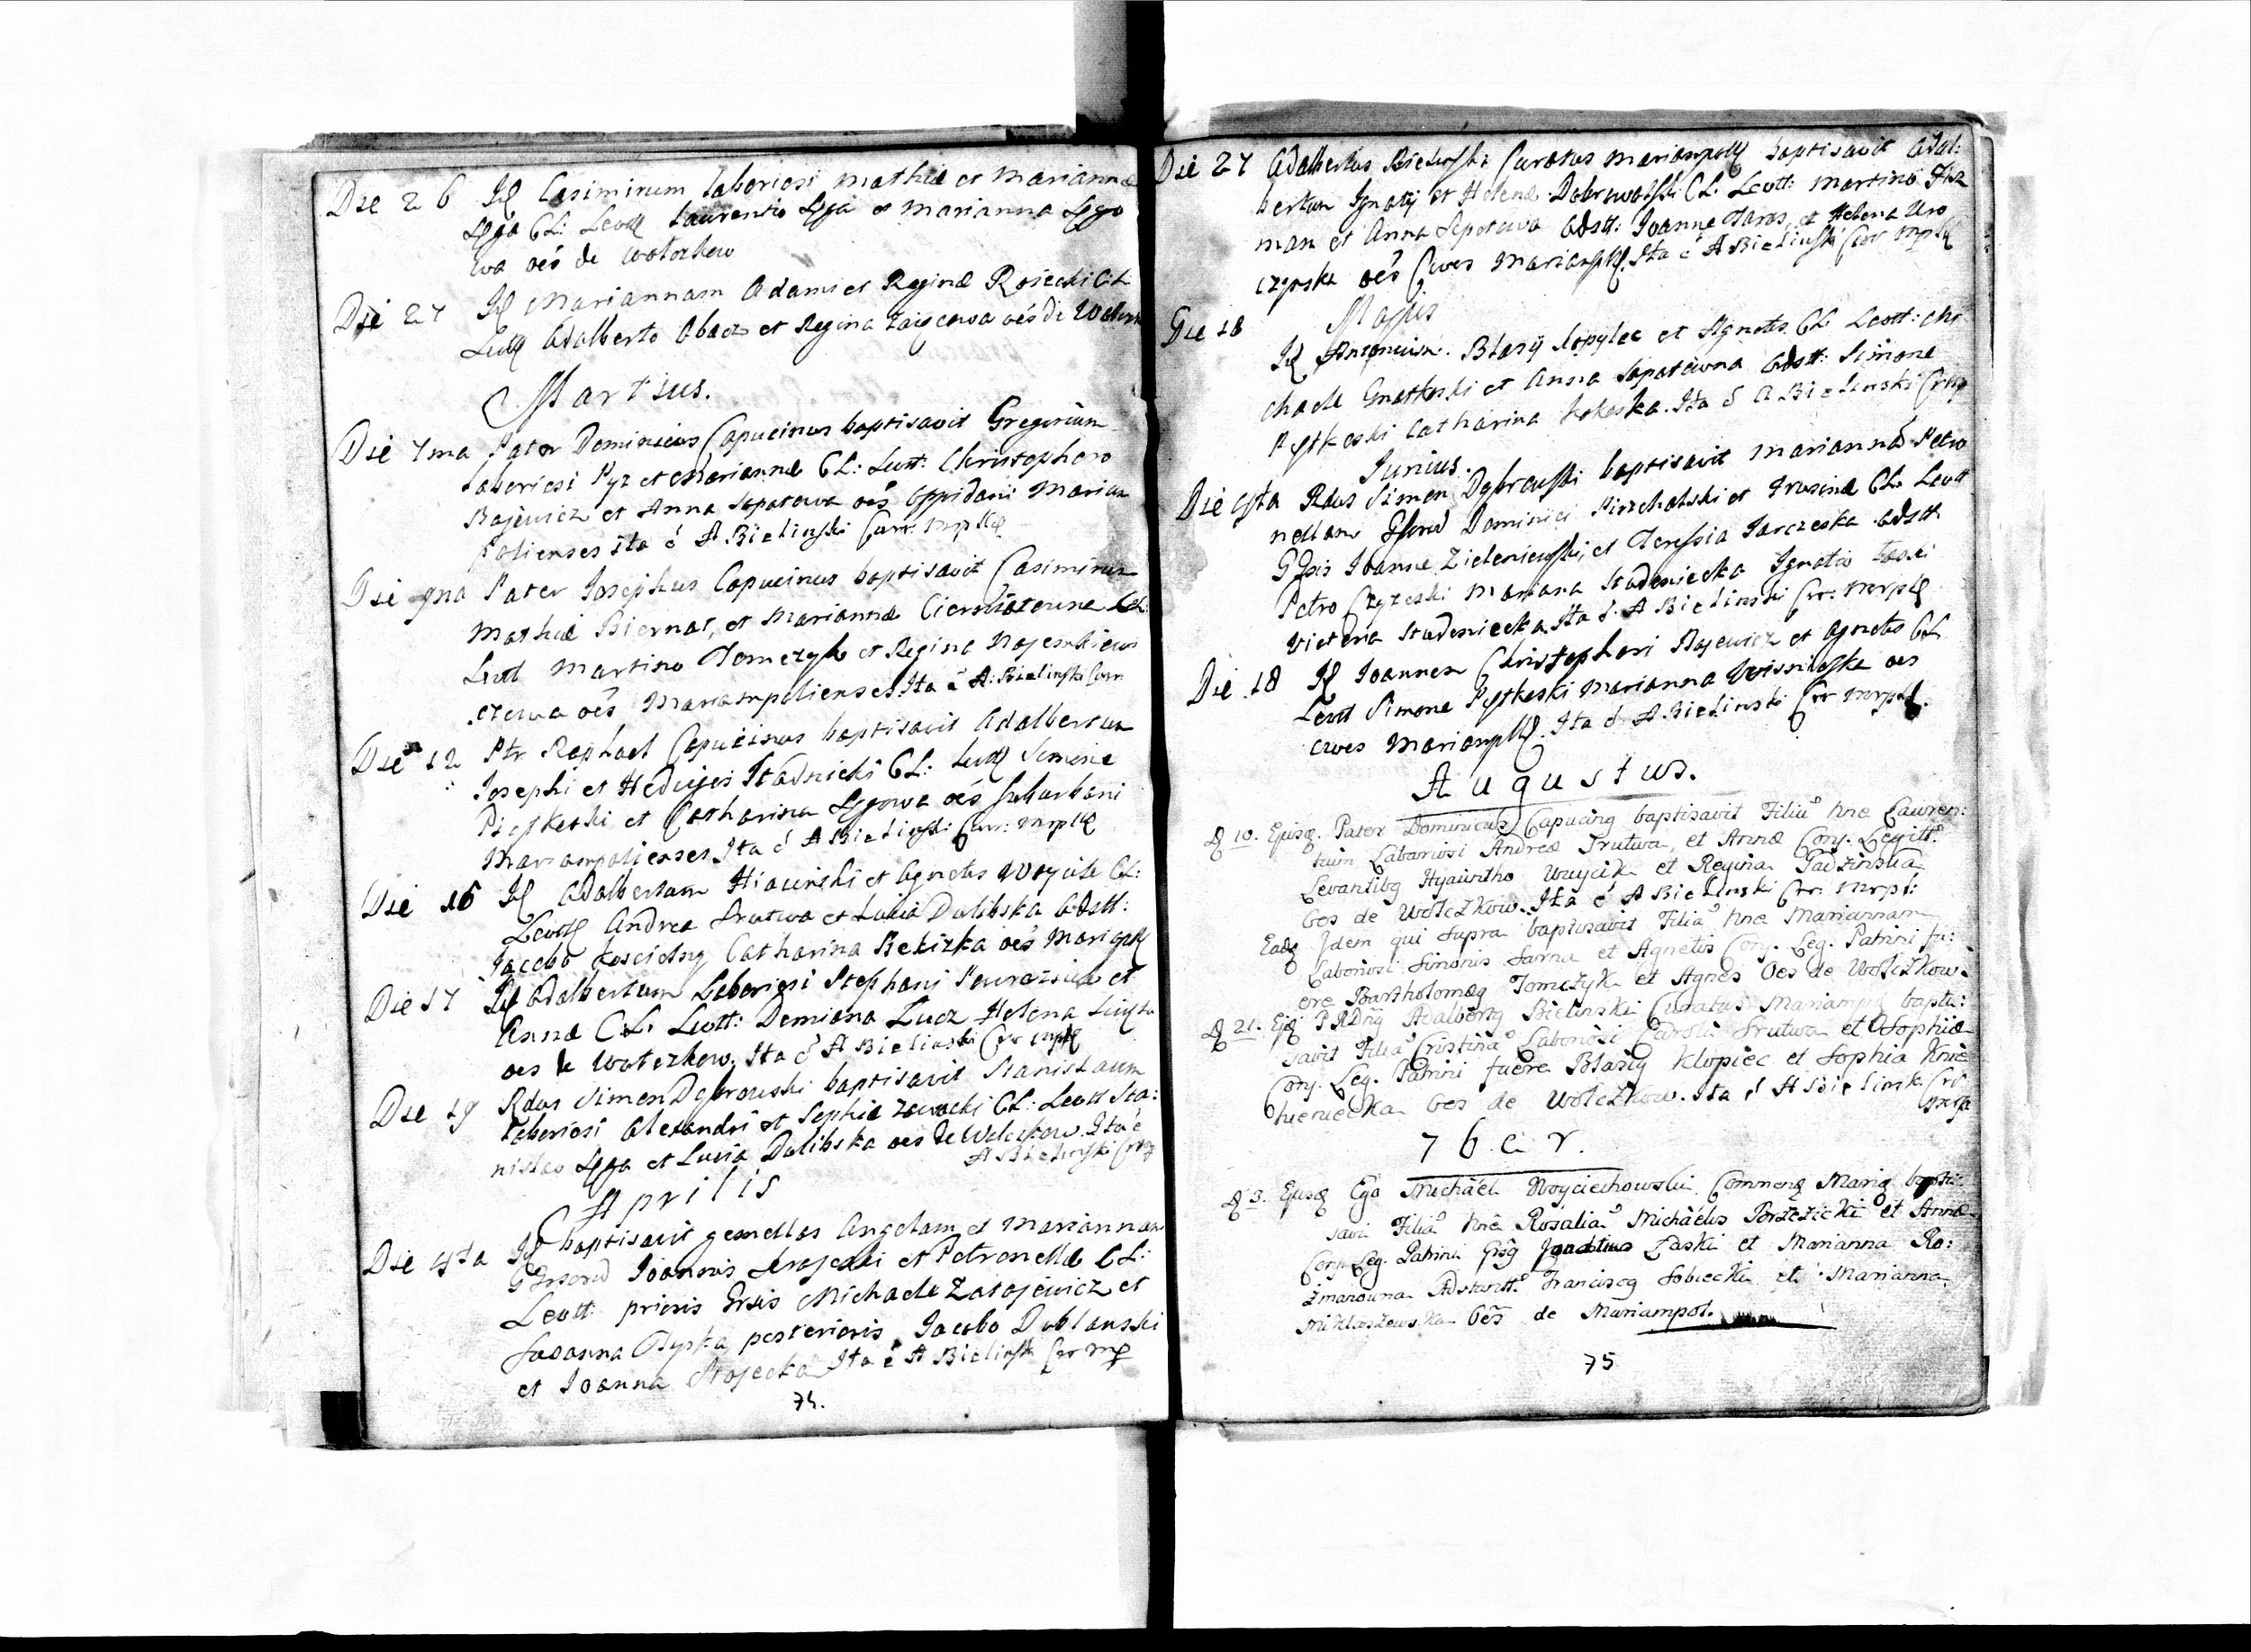 Die 26 Id Casimirum laboriosi Mathiæ et Mariannæ
Lyga CL: Levtt Laurentio Lyga et Marianna Lygo
wa oēs de Wołozkow
Die 27 Id Mariannam Adami et Reginæ Rosiecki CL
Levtt Adalberto Abacz et Regina
Martius.
Die 7ma Pater Dominicus Capucinus baptisavit Gregorium
laboriosi Pyz et Mariannæ CL: Levtt: Christophoro
Bajewicz et Anna Soparewa oēs oppidani Mariam
polienses Ita ē A Bielinski Curr: Mrpllę
Die 9na Pater Josephus Capucinus baptisavit Casimirum
Mathiæ Biernat, et Mariannæ CL:
Levtt Martino Tomczyk et Regina
czowa oēs Mariampolienses Ita ē A: Bielinski Curr
Die 12 Ptr Raphael Capucinus baptisavit Adalbertum
Josephi et Hedvigis Stadnicki CL: Levtt Simone
Piestkoski et Catharina Lygowa oēs suburbani
Mariampolienses Ita ē A Bielinski Curr: Mrpllę
Die 16 Id Adalbertum Hiacinthi et Agnetis Woycik CL:
Levtt Andrea Trutwa et Lucia Dulibska Adstt:
Jacobo Catharina oēs Mariapll
Die 17 Id Adalbertum Laboriosi Stephani et
Annæ CL: Levtt: Demiano Lucz Helena
oes de Wołoczkow. Ita ē A Bielinski Crr mrpllę
Die 19 Rdus Simon Dąbrowski baptisavit Stanislaum
laboriosi Alexandri et Sophiæ Zawacki CL: Levtt Sta:
nislao Lyga et Lucia Dulibska oes de Wołczkow. Ita ē
A Bielinski Crr
Aprilis
Die 4ta Id baptisavit gemellas Angelam et Mariannam
Joannis et Petronellæ CL:
Levtt: prioris Grsis Michaele Zarajewicz et
Susanna posterioris Jacobo Dublanski
et Joanna Ita ē A Bielinski Crr Mp
74.
Die 27 Adalbertus Bielinski Curatus Marianpoll baptisavit Adal:
bertum Ignatij et Helenæ Dobrowolski CL: Levtt: Martino
man et Anna Soporewa Adstt: Joanne Taras, et Helena Uro
czynska oēs Cives Marianpll. Ita ē A Bielinski Curr Mrpllę
Majus
Die 18
Id Antonium. Blasij Kopylec et Agnetis CL Levtt: Mi
chaele Gnatkoski et Anna Soparewna Adstt: Simone
Pystkoski Catharina Kokoska. Ita ē A Bielinski Crr
Junius.
Die 4ta Rdus Simon Dąbrowski baptisavit Mariannā Petro
nellam Dominici Pirzchalski et CL: Levtt
Joanne Zieleniewski, et Teressia Jarczeska Adstt
Petro Czyzeski Mariana Stadeniecka Ignatio Łaski
Victoria Stadeniecka. Ita ē A Bielinski Crr: Mrpllę
Die 18 Id Joannem Christophori Bajewicz et Agnetis CL
Levtt Simone Pystkoski Marianna oes
cives Marianpll. Ita ē A Bielinski Crr Mrpllę.
Augustus.
D 10. Ejusq. Pater Dominicus Capucinq baptisavit Filiū nne Lauren:
tium Laboriosi Andreæ Trutwa, et Annæ Conj. Legitt:
Levantibq Hyacintho Wuycik et Regina
Oes de Wołczkow. Ita ē A Bielinski Crr: Mrpt:
Eadq Idem qui supra baptisavit Filiā nne Mariannam
Laboriosi Simonis Sarna et Agnetis Conj. Leg. Patrini fu:
ere Bartholomeq Tomczyk et Agnes Oes de Wołczkow.
D 21. Ejq P RDnq Adalbertq Bielinski Curatus Mariamp bapti:
savit Filiā Cristinā Laboriosi Caroli Trutwa et Sophiæ
Conj. Leg. Patrini fuere Blasiq Klopiec et Sophia Knie
hieniecka Oes de Wołczkow. Ita ē A Bielinski Crr
Mrpt
7 b e r.
D 3. Ejusq Ego Michael Woyciechowski Commenq Mariā bapti:
savi Filiā nnē Rosaliā Michaëlis et Annæ
Conj. Leg. Patrini Ignatius Łaski et Marianna Ro:
zmanowna Adstantt: Franciscq Sobiecki et Marianna
Miklaszewska Oēs de Mariampol.
75